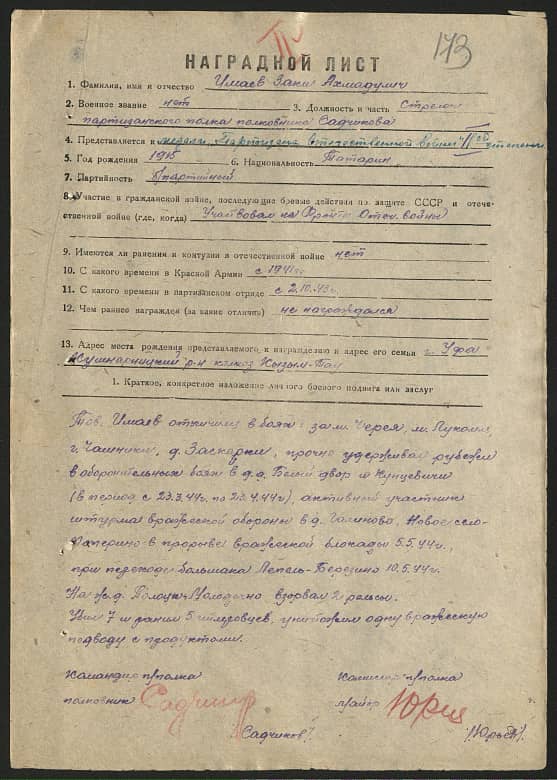 173
НАГРАДНОЙ ЛИСТ
1. Фамилия, имя и отчество Имаев Заки Ахмадулич
2. Военное звание нет 3. Должность и часть Стрелок
партизанского полка полковника Садчикова
4. Представляется к медали "Партизана Отечественной Войны" II ой степени
5. Год рождения 1915 6. Национальность Татарин
7. Партийность Б/партийный
8. Участие в гражданской войне, последующие боевые действия по защите СССР и отече-
ственной войне (где, когда) Участвовал на Фронте Отеч. войны
9. Имеются ли ранения и контузии в отечественной войне нет
10. С какого времени в Красной Армии с 1941 г.
11. С какого времени в партизанском отряде с 2.10.43 г.
12. Чем ранее награжден (за какие отличия) не награждался
13. Адрес места рождения представляемого к награждению и адрес его семьи г. Уфа
Кушнаренцкий р-н колхоз Кызым-Тау
1. Краткое, конкретное изложение личного боевого подвига или заслуг
Тов. Имаев отличился в боях: за м. Черея, м. Лукомль,
г. Чашники, д. Заскарки, прочно удерживал рубежи
в оборонительных боях в д.д. Белый двор и Купцевичи
(в период с 23.3.44г. по 21.4.44г.), активный участник
штурма вражеской обороны в д. Новое село-
в прорыве вражеской блокады 5.5.44г.,
при переходе большака Лепель-Березино 10.5.44г.
На ж.д. Полоцк-Молодечно взорвал 2 рельсы.
Убил 7 и ранил 5 гитлеровцев, уничтожил одну вражескую
подводу с продуктами.
Командир п/полка Комиссар п/полка
полковник Садчиков майор Юрьев
/Садчиков/ /Юрьев/.